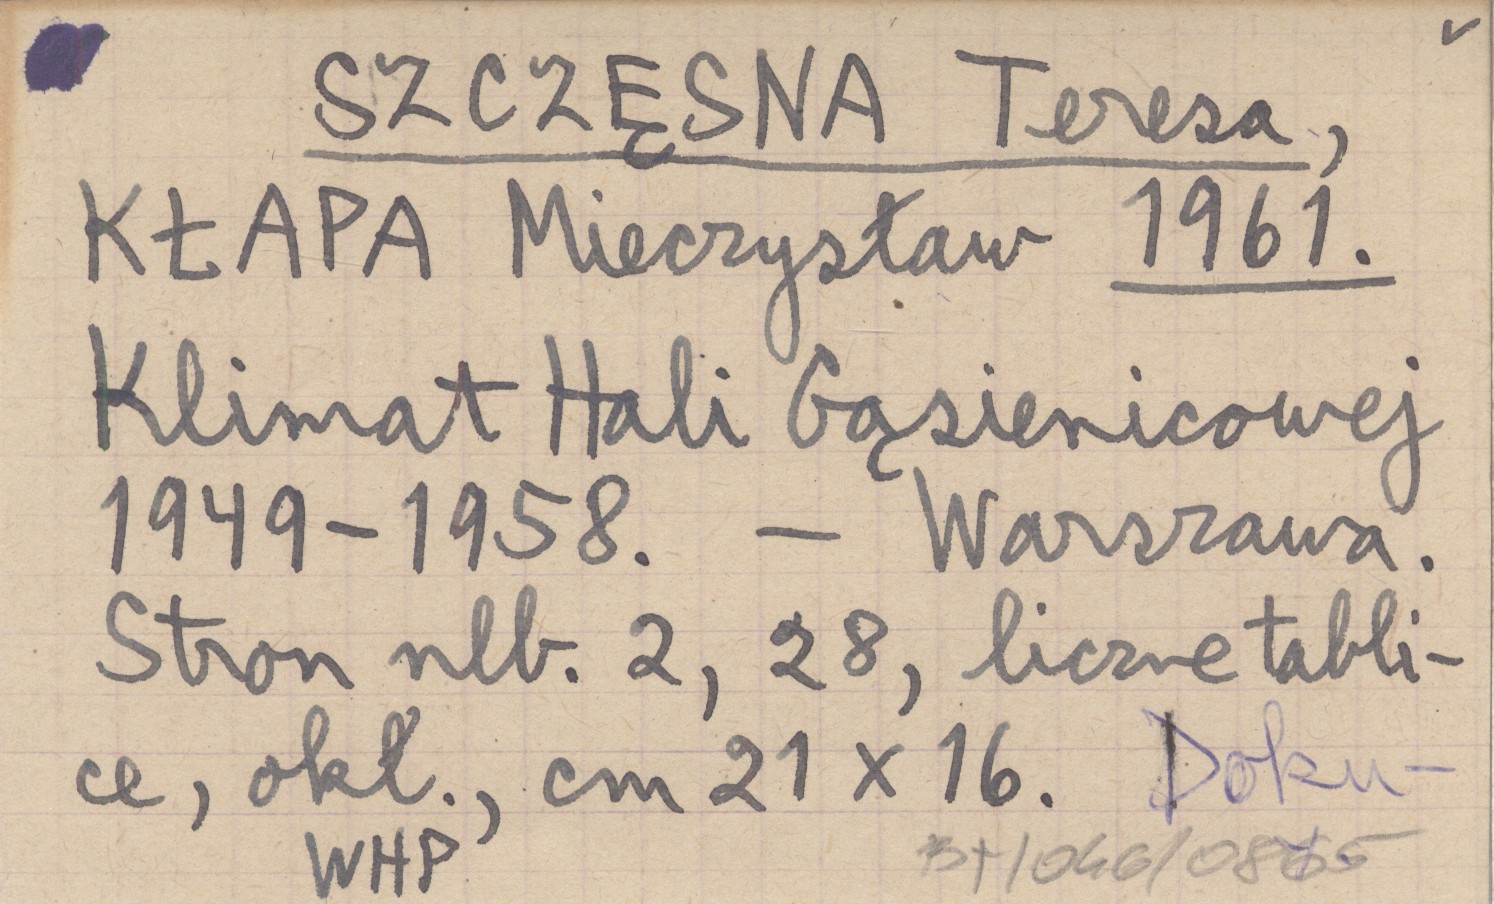 SZCZĘSNA Teresa,
KŁAPA Mieczysław 1961.
Klimat Hali Gąsienicowej
1949-1958. — Warszawa.
Stron nlb. 2, 28, liczne tabli-
ce, okł., cm 21 x 16. Doku-
WHP